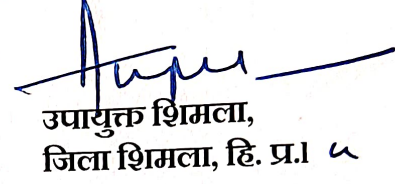 उपायुक्त शिमला,
जिला शिमला, हि. प्र.।